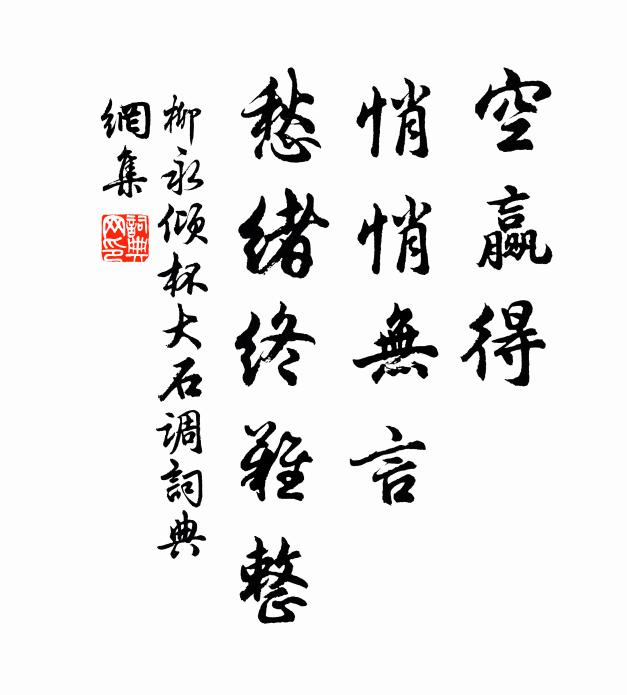 空贏得
悄悄無言
愁緒終難整
柳永傾杯大石调詞典
網集
詞典
网印